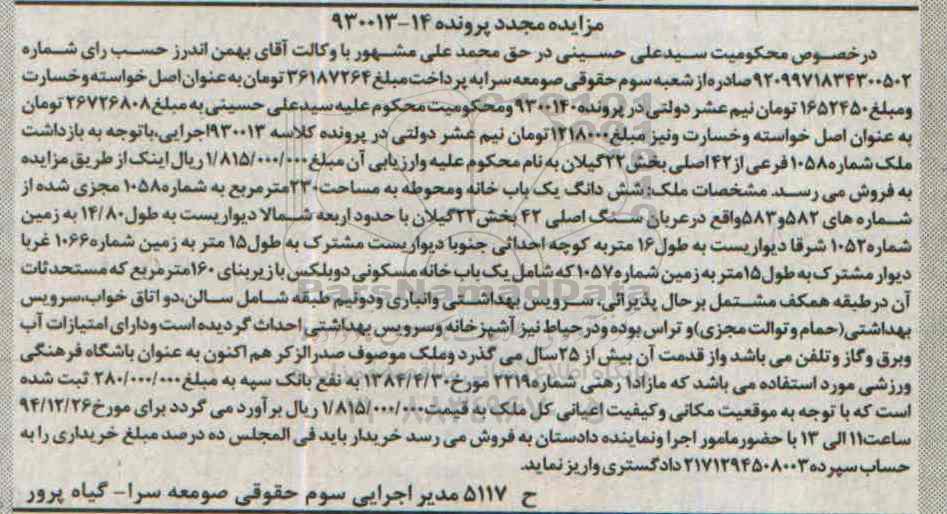 مزایده مجدد پرونده ۱۴-۹۳۰۰۱۳
درخصوص محکومیت سیدعلی حسینی در حق محمد علی مشهور با وکالت آقای بهمن اندرز حسب رای شماره
۹۲۰۹۹۷۱۸۳۴۳۰۰۵۰۲ صادره از شعبه سوم حقوقی صومعه سرا به پرداخت مبلغ ۳۶۱۸۷۲۶۴ تومان به عنوان اصل خواسته وخسارت
ومبلغ ۱۶۵۲۴۵۰ تومان نیم عشر دولتی در پرونده ۹۳۰۰۱۴۰ ومحکومیت محکوم علیه سیدعلی حسینی به مبلغ ۲۶۷۲۶۸۰۸ تومان
به عنوان اصل خواسته وخسارت ونیز مبلغ ۱۲۱۸۰۰۰ تومان نیم عشر دولتی در پرونده کلاسه ۹۳۰۰۱۳ اجرایی،باتوجه به بازداشت
ملک شماره ۱۰۵۸ فرعی از ۴۲ اصلی بخش ۲۲ گیلان به نام محکوم علیه وارزیابی آن مبلغ ۱/۸۱۵/۰۰۰/۰۰۰ ریال اینک از طریق مزایده
به فروش می رسد. مشخصات ملک: شش دانگ یک باب خانه ومحوطه به مساحت ۲۳۰ مترمربع به شماره ۱۰۵۸ مجزی شده از
شماره های ۵۸۲ و ۵۸۳ واقع درعربان سنگ اصلی ۴۲ بخش ۲۲ گیلان با حدود اربعه شمالا دیواریست به طول ۱۴/۸۰ به زمین
شماره ۱۰۵۲ شرقا دیواریست به طول ۱۶ متر به کوچه احداثی جنوبا دیواریست مشترک به طول ۱۵ متر به زمین شماره ۱۰۶۶ غربا
دیوار مشترک به طول ۱۵ متر به زمین شماره ۱۰۵۷ که شامل یک باب خانه مسکونی دوبلکس با زیربنای ۱۶۰ مترمربع که مستحدثات
آن درطبقه همکف مشتمل برحال پذیرائی، سرویس بهداشتی وانباری ودونیم طبقه شامل سالن،دو اتاق خواب،سرویس
بهداشتی(حمام و توالت مجزی)و تراس بوده ودرحیاط نیز آشپزخانه وسرویس بهداشتی احداث گردیده است ودارای امتیازات آب
وبرق وگاز و تلفن می باشد واز قدمت آن بیش از ۲۵ سال می گذرد وملک موصوف صدرالزکر هم اکنون به عنوان باشگاه فرهنگی
ورزشی مورد استفاده می باشد که مازاد۱ رهنی شماره ۲۲۱۹ مورخ ۱۳۸۴/۴/۳۰ به نفع بانک سپه به مبلغ ۲۸۰/۰۰۰/۰۰۰ ثبت شده
است که با توجه به موقعیت مکانی وکیفیت اعیانی کل ملک به قیمت ۱/۸۱۵/۰۰۰/۰۰۰ ریال برآورد می گردد برای مورخ ۹۴/۱۲/۲۶
ساعت ۱۱ الی ۱۳ با حضور مامور اجرا ونماینده دادستان به فروش می رسد خریدار باید فی المجلس ده درصد مبلغ خریداری را به
حساب سپرده ۲۱۷۱۲۹۴۵۰۸۰۰۳ دادگستری واریز نماید.
ح ۵۱۱۷ مدیر اجرایی سوم حقوقی صومعه سرا- گیاه پرور
ParsNamadData